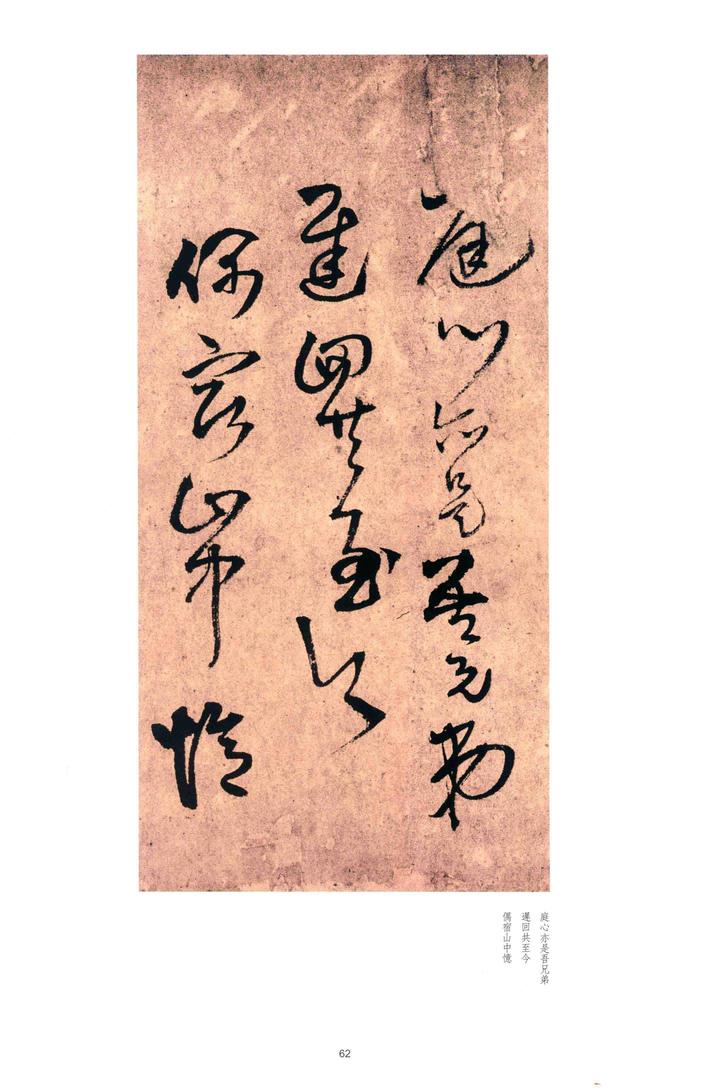 庭心亦是吾兄弟
遲回共至今
偶宿山中憶
庭心亦是吾兄弟
遲回共至今
偶宿山中憶
62